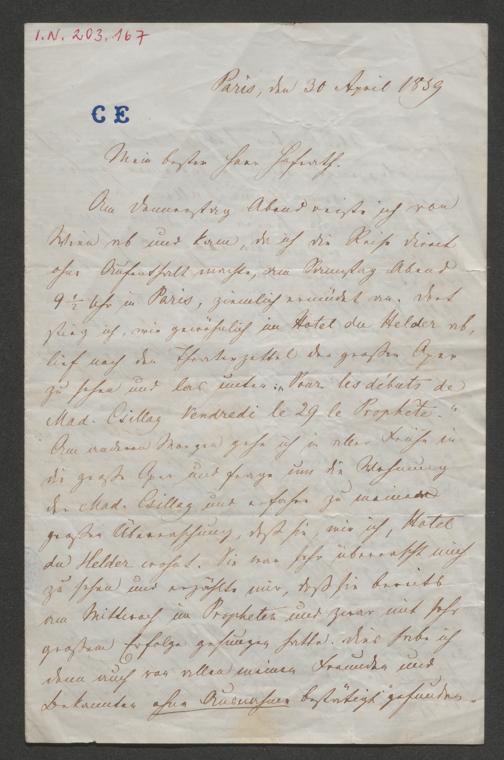 I.N. 203.167
Paris, den 30 April 1859
CE
Mein bester Herr Hofrath.
Am Donnerstag Abend reiste ich von
Wien ab und kam, da ich die Reise direct
ohne Aufenthalt machte, am Samstag Abend
9 1/2 Uhr in Paris, ziemlich ermüdet an. Dort
stieg ich, wie gewöhnlich im Hotel du Helder ab,
lief nach den Theaterzettel der großen Oper
zu sehen und las unter: „Pour les débuts de
Mad. Csillag Vendredi le 29 le Prophète.“
Am anderen Morgen gehe ich in aller Frühe in
die große Oper und frage um die Wohnung
der Mad. Csillag und erfahre zu meiner
großen Überraschung, daß sie, wie ich, Hotel
du Helder wohnt. Sie war sehr überrascht mich
zu sehen und erzählte mir, daß sie bereits
am Mittwoch im Propheten und zwar mit sehr
großem Erfolge gesungen hatte. Dies habe ich
denn auch von allen meinen Freunden und
Bekannten ohne Ausnahme bestätigt gefunden.